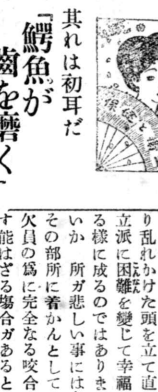 其れは初耳だ
『鰐魚が
齒を磨く
り乱れかけた頭を立て直
立派に困難を變じて幸福
る樣に成るのではありき
いか 所ガ悲しい事には
その部所に着かんとして
欠員の爲に完全なる咬合
す能はざる塲合ガあると